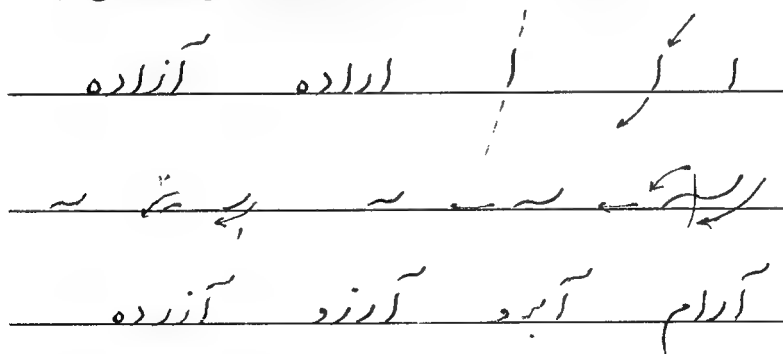 ا ا ا اراده آزاده
آرام آبرو آرزو آزرده